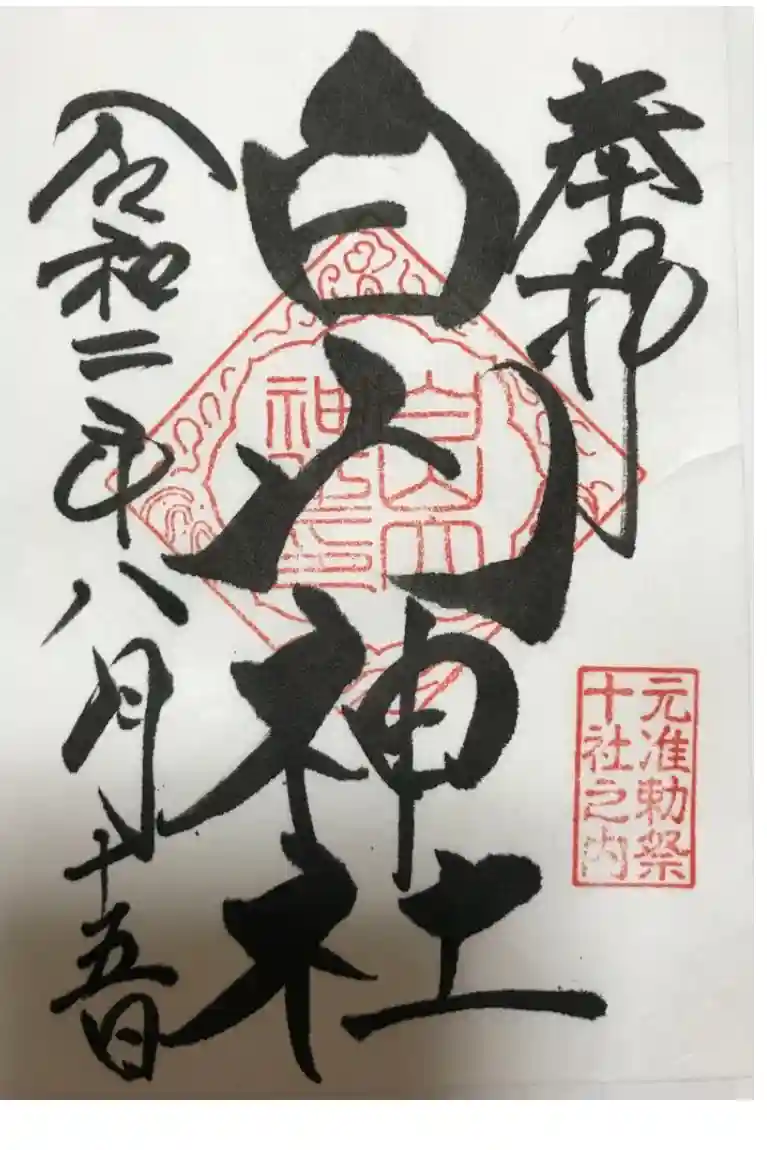 奉拝
元准勅祭
十社之内
白山神社
白山
神社印
令和二年八月十五日